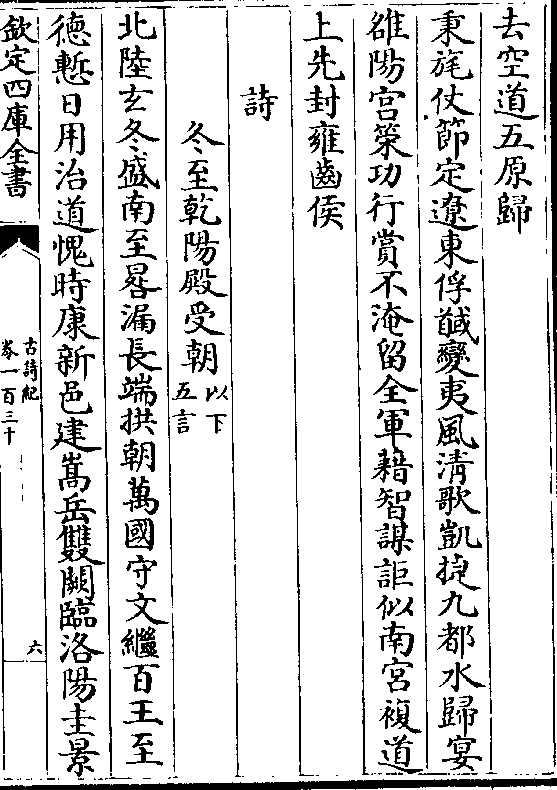 去空道五原歸
秉旄仗節定遼東俘馘變夷風清歌凱捷九都水歸宴
雒陽宮策功行賞不淹留全軍藉智謀詎似南宮複道
上先封雍齒侯
詩
冬至乾陽殿受朝以下五言
北陸玄冬盛南至晷漏長端拱朝萬國守文繼百王至
德慙日用治道愧時康新邑建嵩岳雙闕臨洛陽圭景
欽定四庫全書
古詩紀
卷一百三十
六